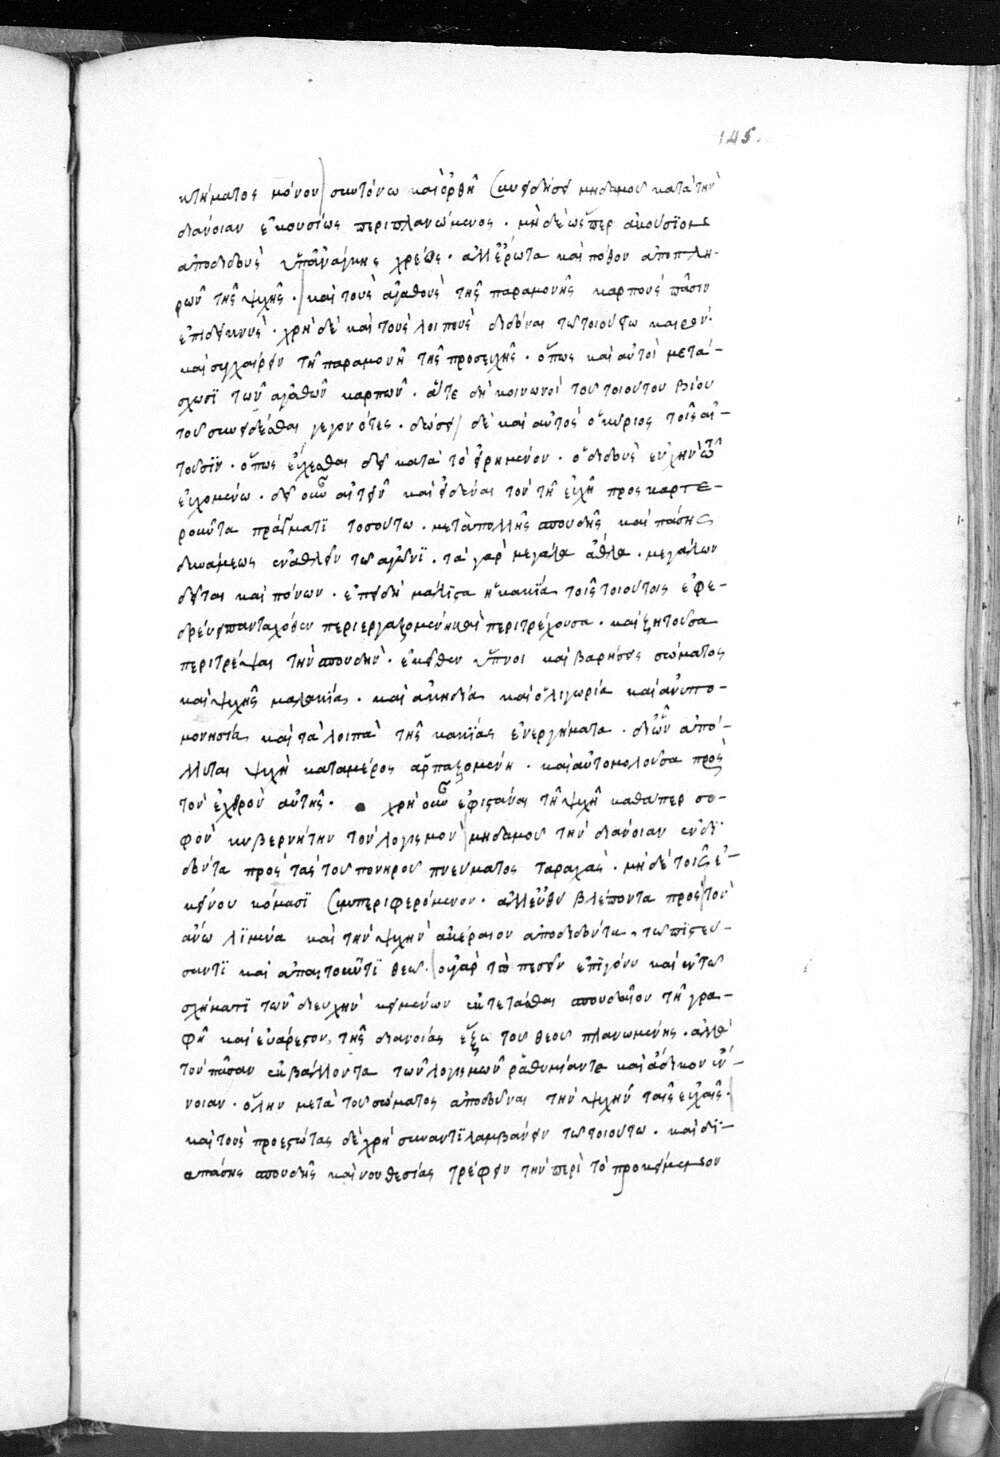 145.
κτήματος μόνον συντόνω καὶ ὀρθῆ συνειδήσει μηδαμοῦ κατὰ τὴν
διάνοιαν ἑκουσίως περιπλανώμενος . μὴ δὲ ὥσπερ ἀκούσϊον
ἀποδιδοὺς ὑπανάγκης χρέος . ἀλλ' ἔρωτα καὶ πόθον ἀποπλη-
ρῶν τῆς ψυχῆς . καὶ τοὺς ἀγαθοὺς τῆς παραμονῆς καρποὺς πᾶσιν
ἐπιδεικνύς . χρὴ δὲ καὶ τοὺς λοιποὺς διδόναι τῶ τοιούτω καιρόν .
καὶ συγχαίρειν τῆ παραμονῆ τῆς προσευχῆς . ὅπως καὶ αὐτοὶ μετά-
σχωσϊ τῶν ἀγαθῶν καρπῶν . ἅτε δὴ κοινωνοὶ τοῦ τοιούτου βίου
τοῦ συνδέσθαι γεγονότες . δώσει δὲ καὶ αὐτὸς ὁ κύριος τοῖς αἰ-
τοῦσϊν . ὅπως εὔχεσθαι δεῖ κατὰ τὸ εἰρημένον . ὁ διδοὺς εὐχὴν τῶ
εὐχομένω . δεῖ οὖν αἰτεῖν καὶ εἰδέναι τὸν τῆ εὐχῆ προσκαρτε-
ροῦντα πράγματϊ τοσούτω . μετὰ πολλῆς σπουδῆς καὶ πάσης
δυνάμεως ἐναθλεῖν τῶ ἀγῶνϊ . τὰ γὰρ μεγάλα ἆθλα . μεγάλων
δεῖται καὶ πόνων . ἐπειδὴ μάλϊστα ἡ κακία τοῖς τοιούτοις ἐφε-
δρεύει πανταχόθεν περιεργαζομένη καὶ περιτρέχουσα . καὶ ζητοῦσα
περιτρέψαι τὴν σπουδήν . ἐκεῖθεν ὕπνοι καὶ βαρήσεις σώματος
καὶ ψυχῆς μαλακίας . καὶ ἀκηδία καὶ ὀλιγωρία καὶ ἀνυπο-
μονησία καὶ τὰ λοιπὰ τῆς κακίας ἐνεργήματα . δι' ὧν ἀπό-
λλυται ψυχὴ κατὰ μέρος ἁρπαζομένη . καὶ αὐτομολοῦσα πρὸς
τὸν ἐχθρὸν αὐτῆς . χρὴ οὖν ἐφιστάναι τῆ ψυχῆ καθάπερ σο-
φὸν κυβερνήτην τὸν λογισμὸν μηδαμοῦ τὴν διάνοιαν ἐνδϊ-
δόντα πρὸς τὰς τοῦ πονηροῦ πνεύματος ταραχάς . μὴ δὲ τοῖς ἐ-
κείνου κύμασϊ συμπεριφερόμενον . ἀλλ' εὐθὺ βλέποντα πρὸς τὸν
ἄνω λϊμένα καὶ τὴν ψυχὴν ἀκέραιον ἀποδιδόντα . τῶ πϊστεύ-
σαντϊ καὶ ἀπαιτοῦντϊ θεῶ . οὐ γὰρ τὸ πεσεῖν ἐπϊγόνυ καὶ ἐν τῶ
σχήματϊ τῶν δι' εὐχὴν κειμένων ἐκτετάσθαι σπουδαῖον τῆ γρα-
φῆ καὶ εὐάρεστον, τῆς διανοίας ἔξω τοῦ θεοῦ πλανωμένης . ἀλλὰ
τὸν πᾶσαν ἐκβάλλοντα τῶν λογισμῶν ῥαθυμίαν τε καὶ ἄδικον ἔν-
νοιαν . ὅλην μετὰ τοῦ σώματος ἀποδοῦναι τὴν ψυχὴν ταῖς εὐχαῖς .
καὶ τοὺς προεστῶτας δὲ χρὴ συναντϊλαμβάνειν τῶ τοιούτω . καὶ δϊ-
απάσης σπουδῆς καὶ νουθεσίας τρέφειν τὴν περὶ τὸ προκείμενον